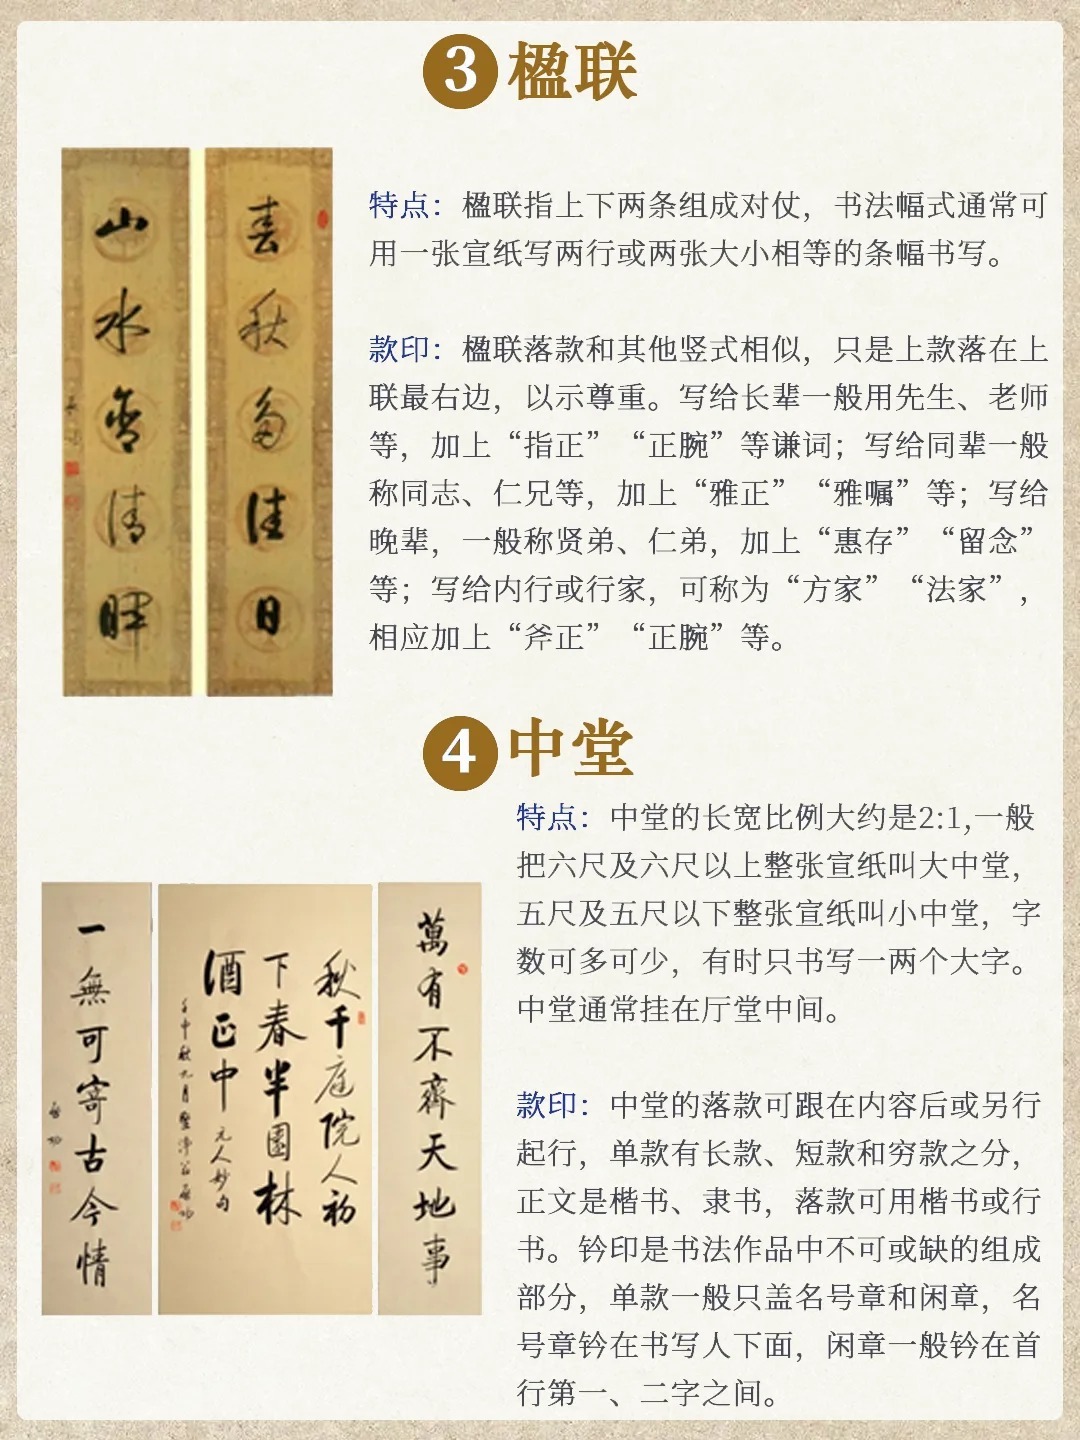 3 楹联
春秋多佳日
山水含清晖
启功
特点：楹联指上下两条组成对仗，书法幅式通常可
用一张宣纸写两行或两张大小相等的条幅书写。
款印：楹联落款和其他竖式相似，只是上款落在上
联最右边，以示尊重。写给长辈一般用先生、老师
等，加上“指正”“正腕”等谦词；写给同辈一般
称同志、仁兄等，加上“雅正”“雅嘱”等；写给
晚辈，一般称贤弟、仁弟，加上“惠存”“留念”
等；写给内行或行家，可称为“方家”“法家”，
相应加上“斧正”“正腕”等。
4 中堂
萬有不齊天地事
秋千庭院人初
下春半園林
酒正中 元人妙句
一無可寄古今情
启功
特点：中堂的长宽比例大约是2:1,一般
把六尺及六尺以上整张宣纸叫大中堂，
五尺及五尺以下整张宣纸叫小中堂，字
数可多可少，有时只书写一两个大字。
中堂通常挂在厅堂中间。
款印：中堂的落款可跟在内容后或另行
起行，单款有长款、短款和穷款之分，
正文是楷书、隶书，落款可用楷书或行
书。钤印是书法作品中不可或缺的组成
部分，单款一般只盖名号章和闲章，名
号章钤在书写人下面，闲章一般钤在首
行第一、二字之间。